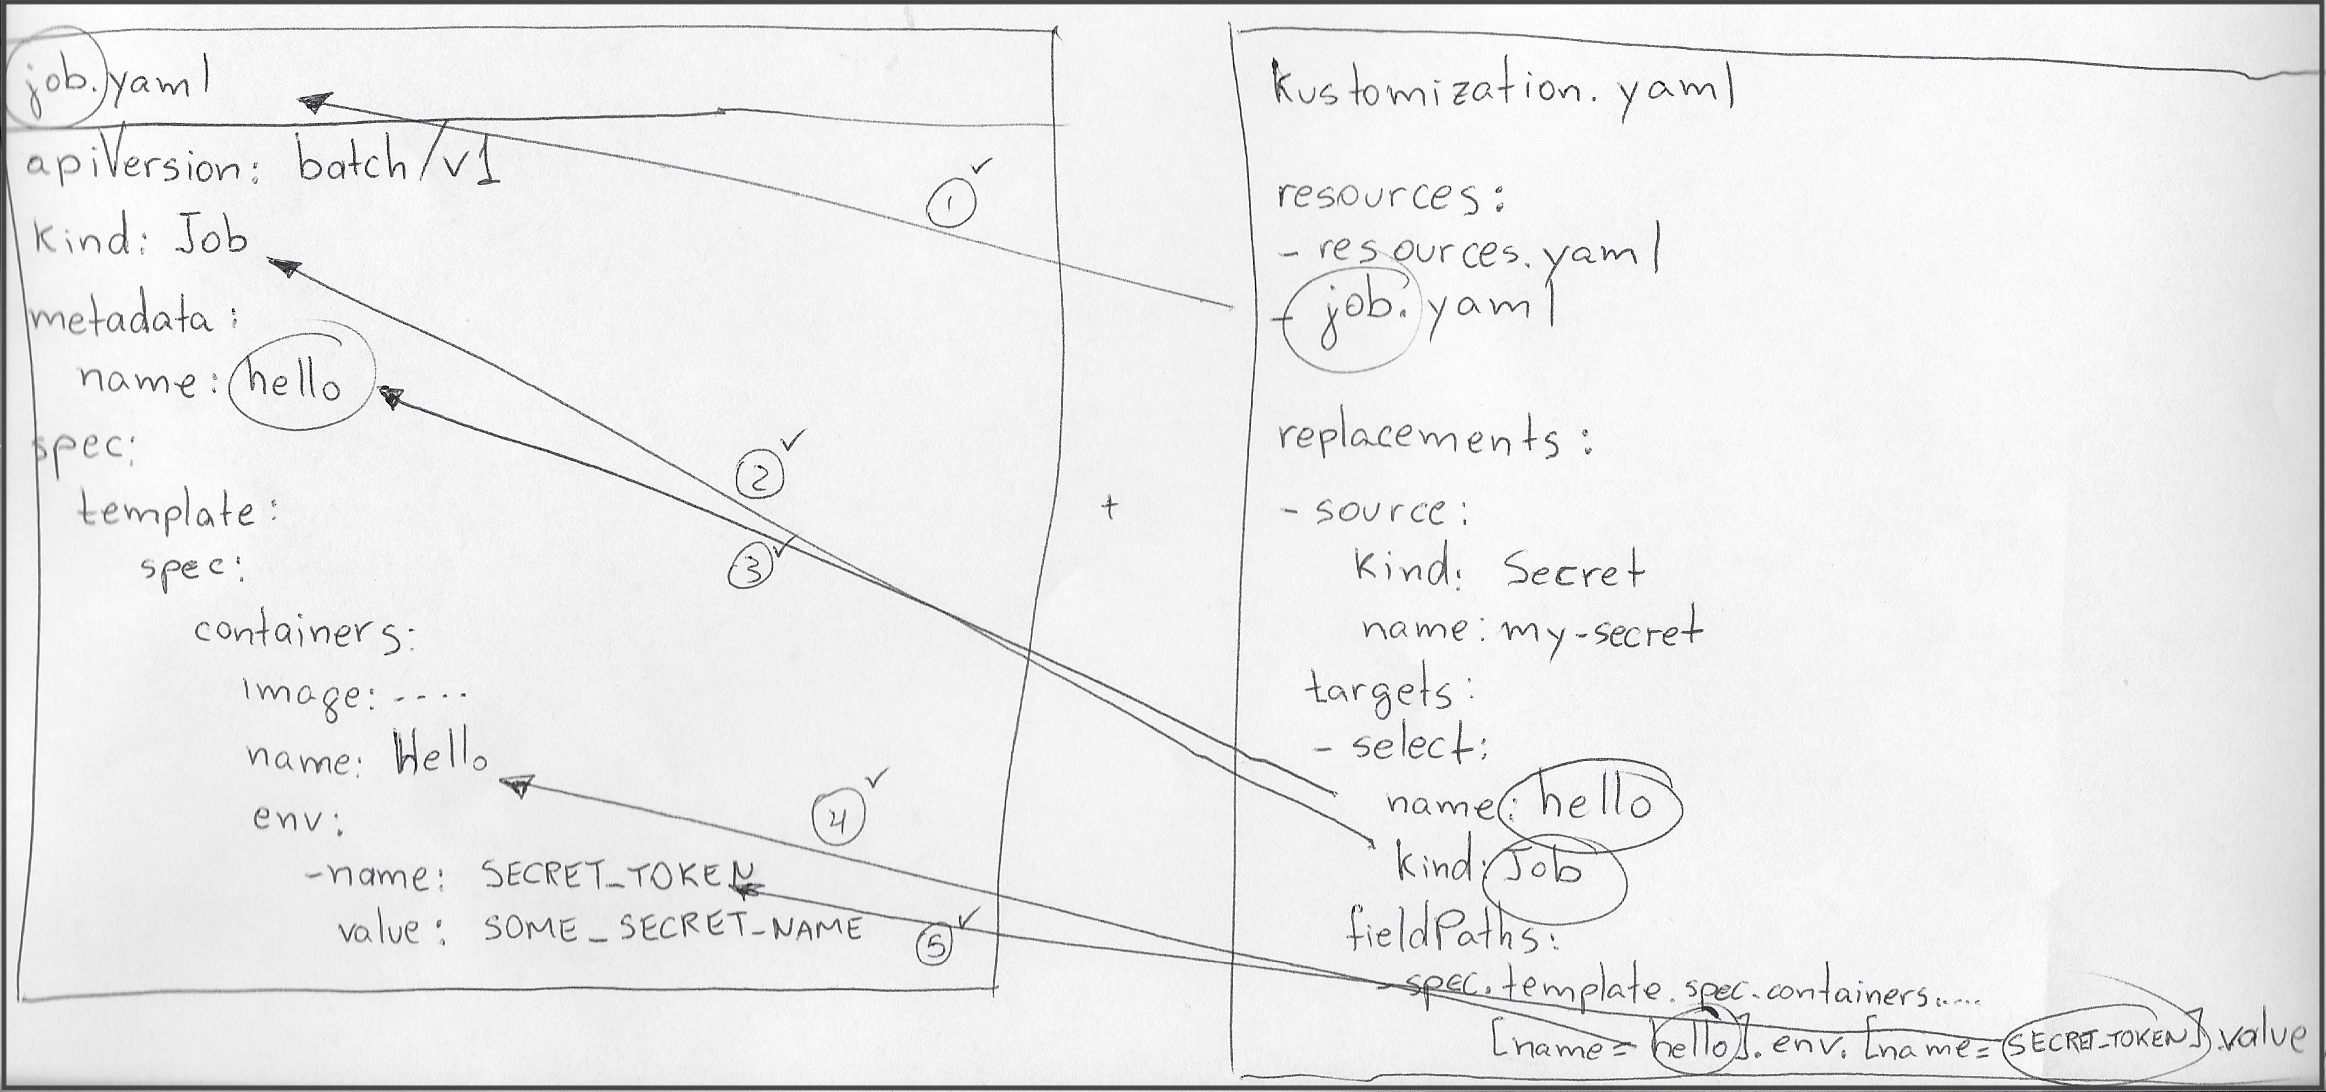 job.yaml
apiVersion: batch/v1
kind: Job
metadata:
name: hello
spec:
template:
spec:
containers:
image: ----
name: Hello
env:
-name: SECRET_TOKEN
value: SOME_SECRET_NAME
1
2
3
4
5
+
kustomization.yaml
resources:
- resources.yaml
- job.yaml
replacements:
- source:
kind: Secret
name: my-secret
targets:
- select:
name: hello
kind: Job
fieldPaths:
- spec.template.spec.containers.....
[name=hello].env.[name=SECRET_TOKEN].value